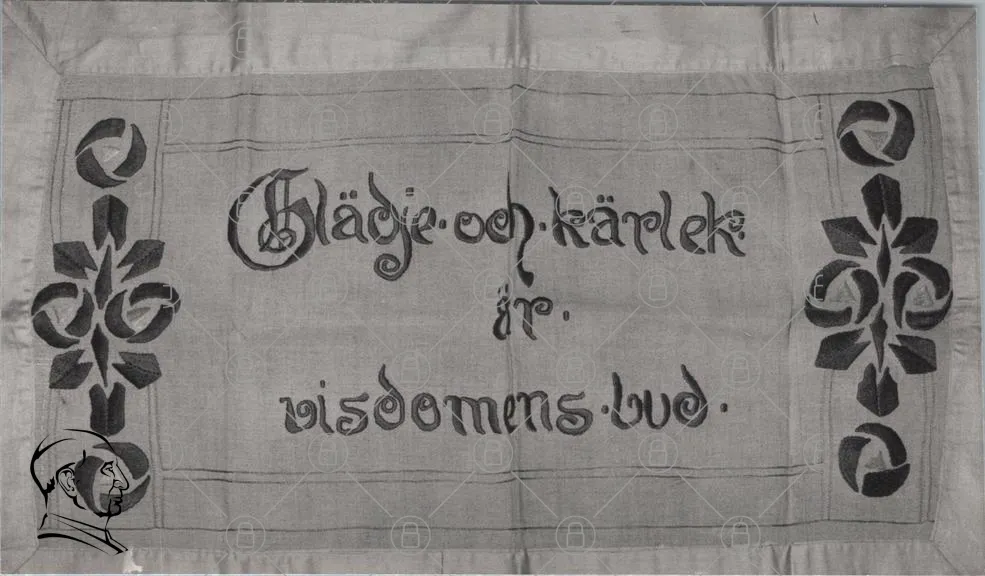 Glädje·och·kärlek·
är·
visdomens·bud·